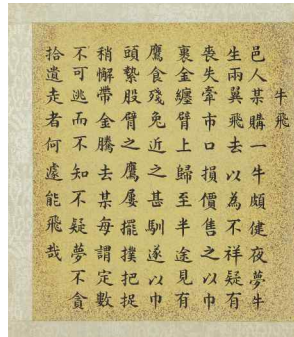 牛飛
邑人某購一牛頗健夜夢牛
生兩翼飛去以為不祥疑有
喪失牽市口損價售之以巾
裹金纏臂上歸至半途見有
鷹食殘兔近之甚馴遂以巾
頭縶股臂之鷹屢擺撲把捉
稍懈帶金騰去某每謂定數
不可逃而不知不疑夢不貪
拾遺走者何遽能飛哉